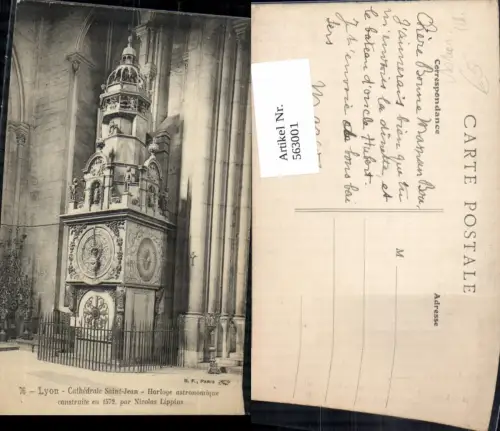 B. F., Paris
76 - Lyon - Cathédrale Saint-Jean - Horloge astronomique
construite en 1572, par Nicolas Lippius
Artikel Nr.
563001
CARTE POSTALE
Correspondance
M
Adresse
Chère Bonne Maman
J'aimerais bien que tu
m'envoies la dînette et
le bateau d'oncle
Je t'envoie de bons